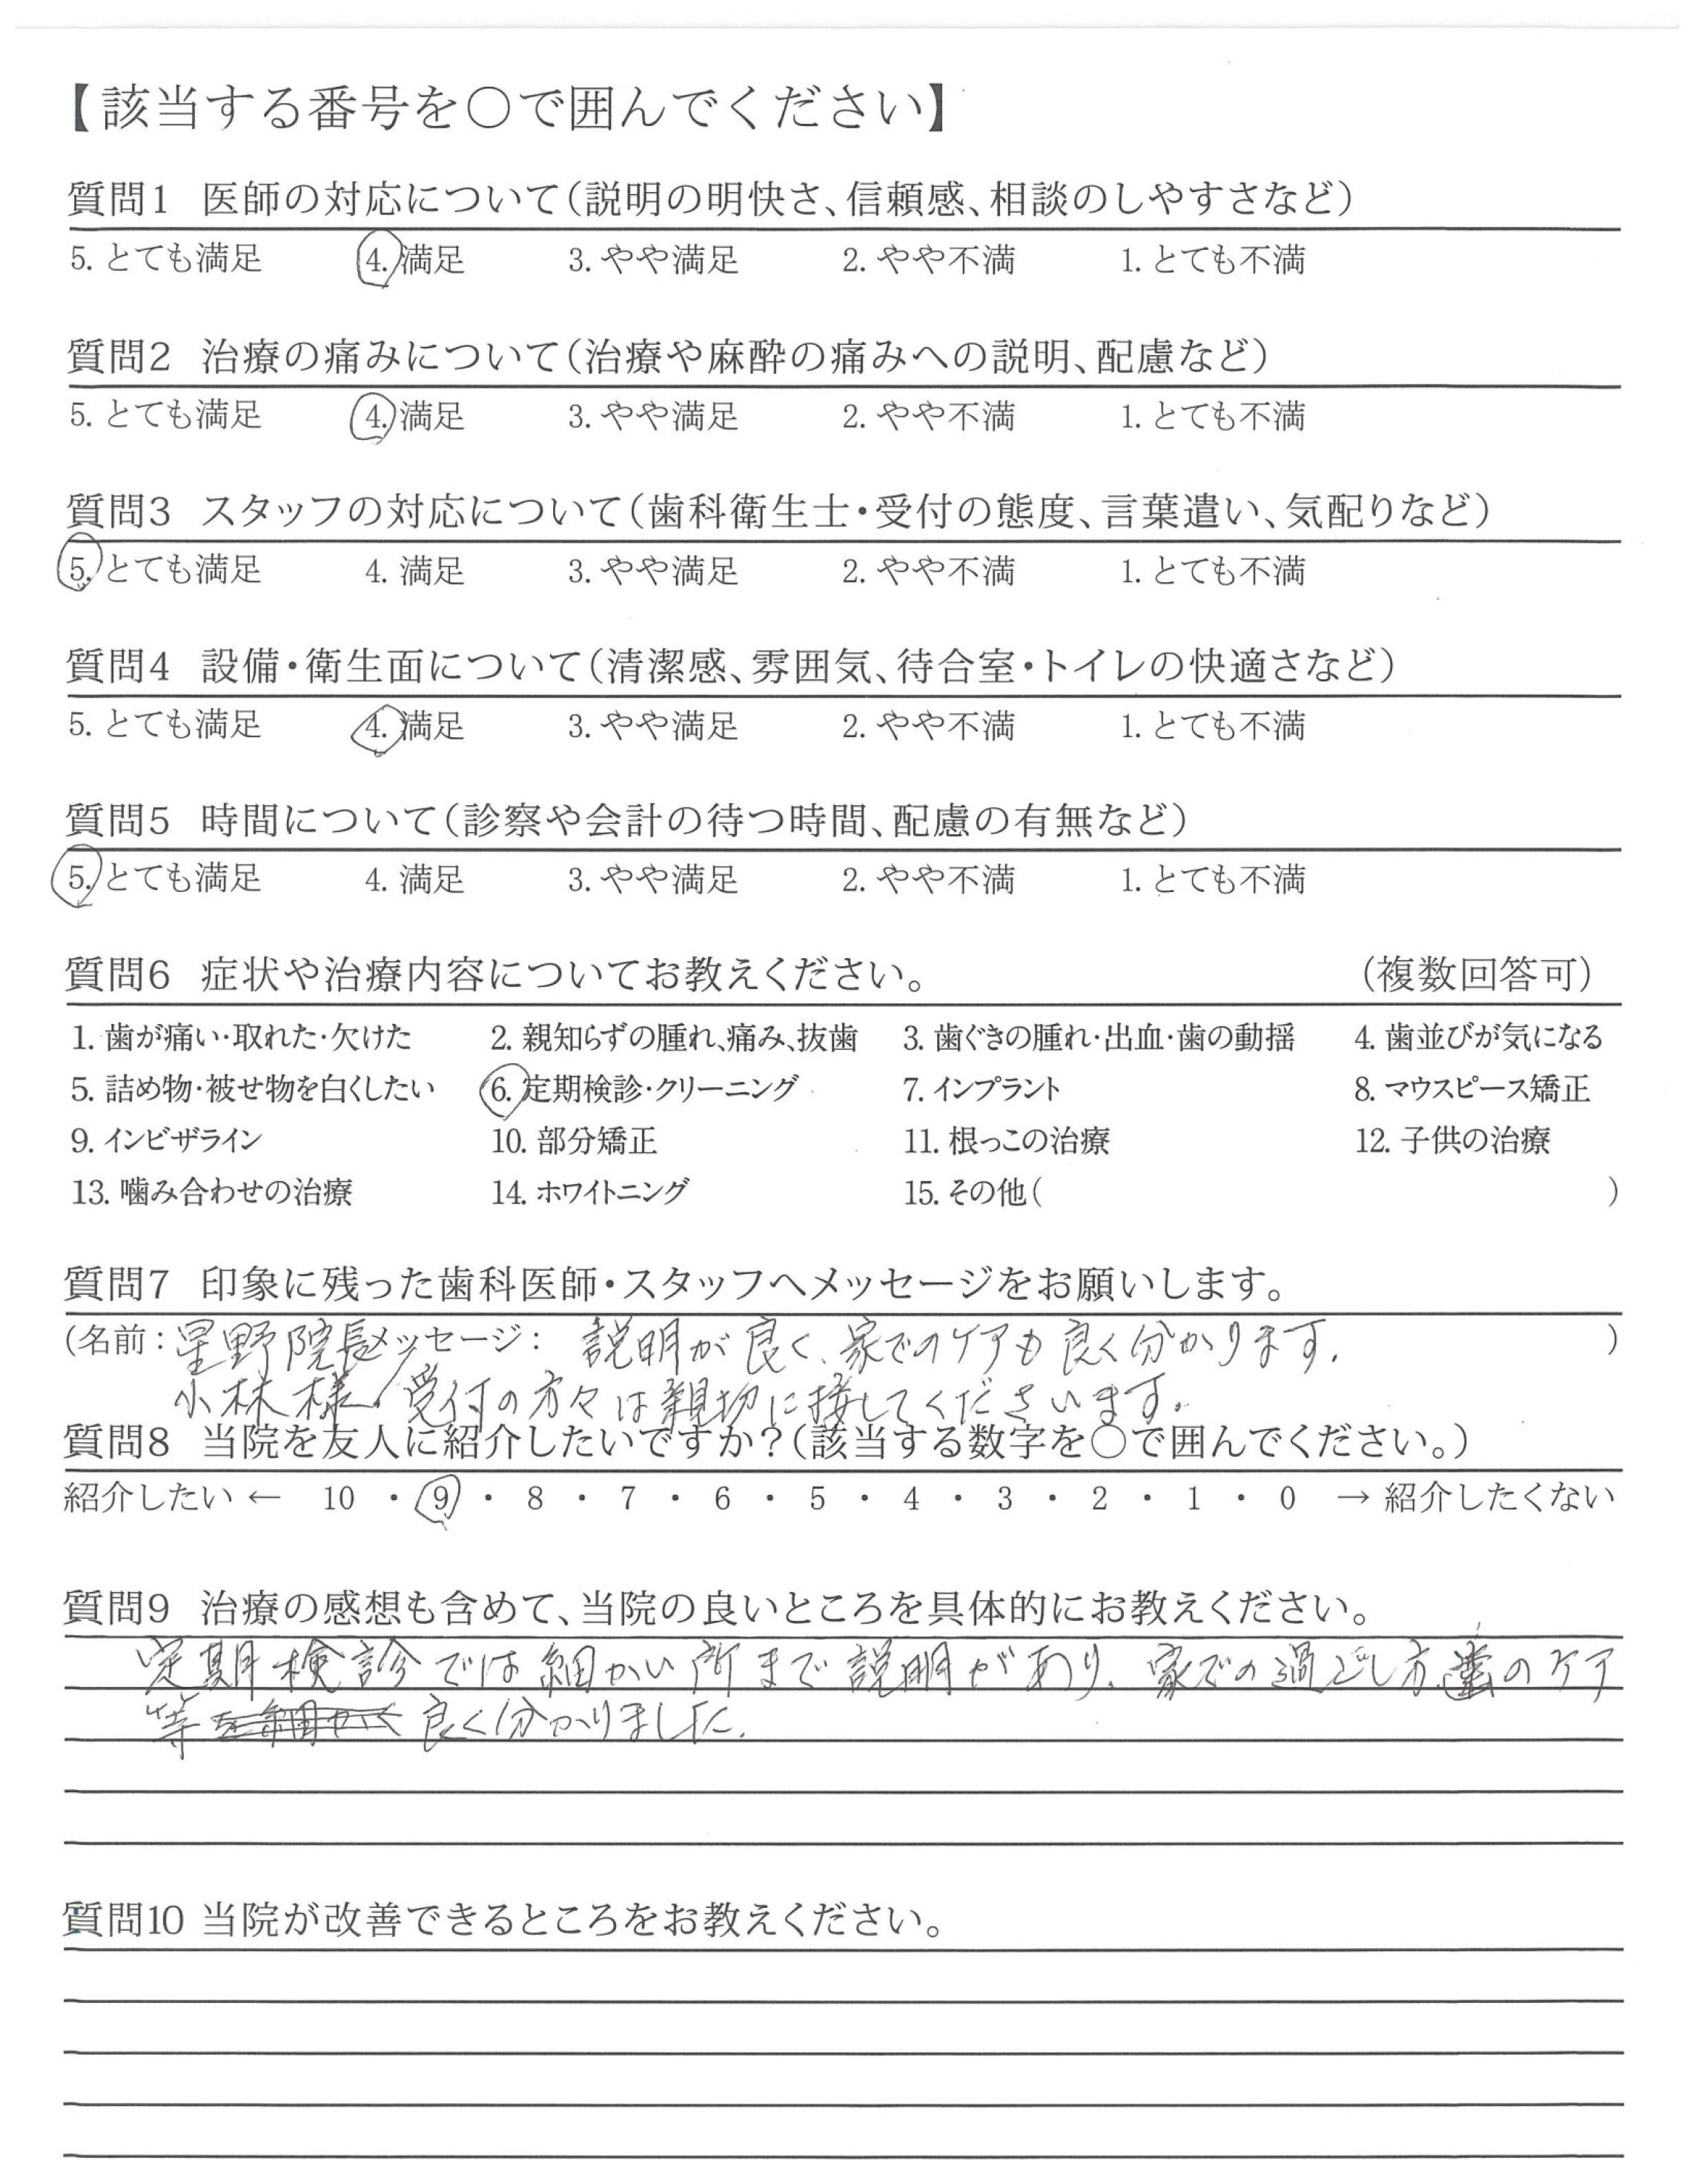 【該当する番号を○で囲んでください】
質問1 医師の対応について(説明の明快さ、信頼感、相談のしやすさなど)
5. とても満足 4. 満足 3. やや満足 2. やや不満 1. とても不満
質問2 治療の痛みについて(治療や麻酔の痛みへの説明、配慮など)
5. とても満足 4. 満足 3. やや満足 2. やや不満 1. とても不満
質問3 スタッフの対応について(歯科衛生士・受付の態度、言葉遣い、気配りなど)
5. とても満足 4. 満足 3. やや満足 2. やや不満 1. とても不満
質問4 設備・衛生面について(清潔感、雰囲気、待合室・トイレの快適さなど)
5. とても満足 4. 満足 3. やや満足 2. やや不満 1. とても不満
質問5 時間について(診察や会計の待つ時間、配慮の有無など)
5. とても満足 4. 満足 3. やや満足 2. やや不満 1. とても不満
質問6 症状や治療内容についてお教えください。 (複数回答可)
1. 歯が痛い・取れた・欠けた 2. 親知らずの腫れ、痛み、抜歯 3. 歯ぐきの腫れ・出血・歯の動揺 4. 歯並びが気になる
5. 詰め物・被せ物を白くしたい 6. 定期検診・クリーニング 7. インプラント 8. マウスピース矯正
9. インビザライン 10. 部分矯正 11. 根っこの治療 12. 子供の治療
13. 噛み合わせの治療 14. ホワイトニング 15. その他( )
質問7 印象に残った歯科医師・スタッフへメッセージをお願いします。
(名前：星野院長 メッセージ： 説明が良く、家でのケアも良く分かります。 )
小林様、受付の方々は親切に接してくださいます。
質問8 当院を友人に紹介したいですか？(該当する数字を○で囲んでください。)
紹介したい ← 10 ・ 9 ・ 8 ・ 7 ・ 6 ・ 5 ・ 4 ・ 3 ・ 2 ・ 1 ・ 0 → 紹介したくない
質問9 治療の感想も含めて、当院の良いところを具体的にお教えください。
定期検診では細かい所まで説明があり、家での過ごし方、歯のケア
等を細かく良く分かりました。
質問10 当院が改善できるところをお教えください。